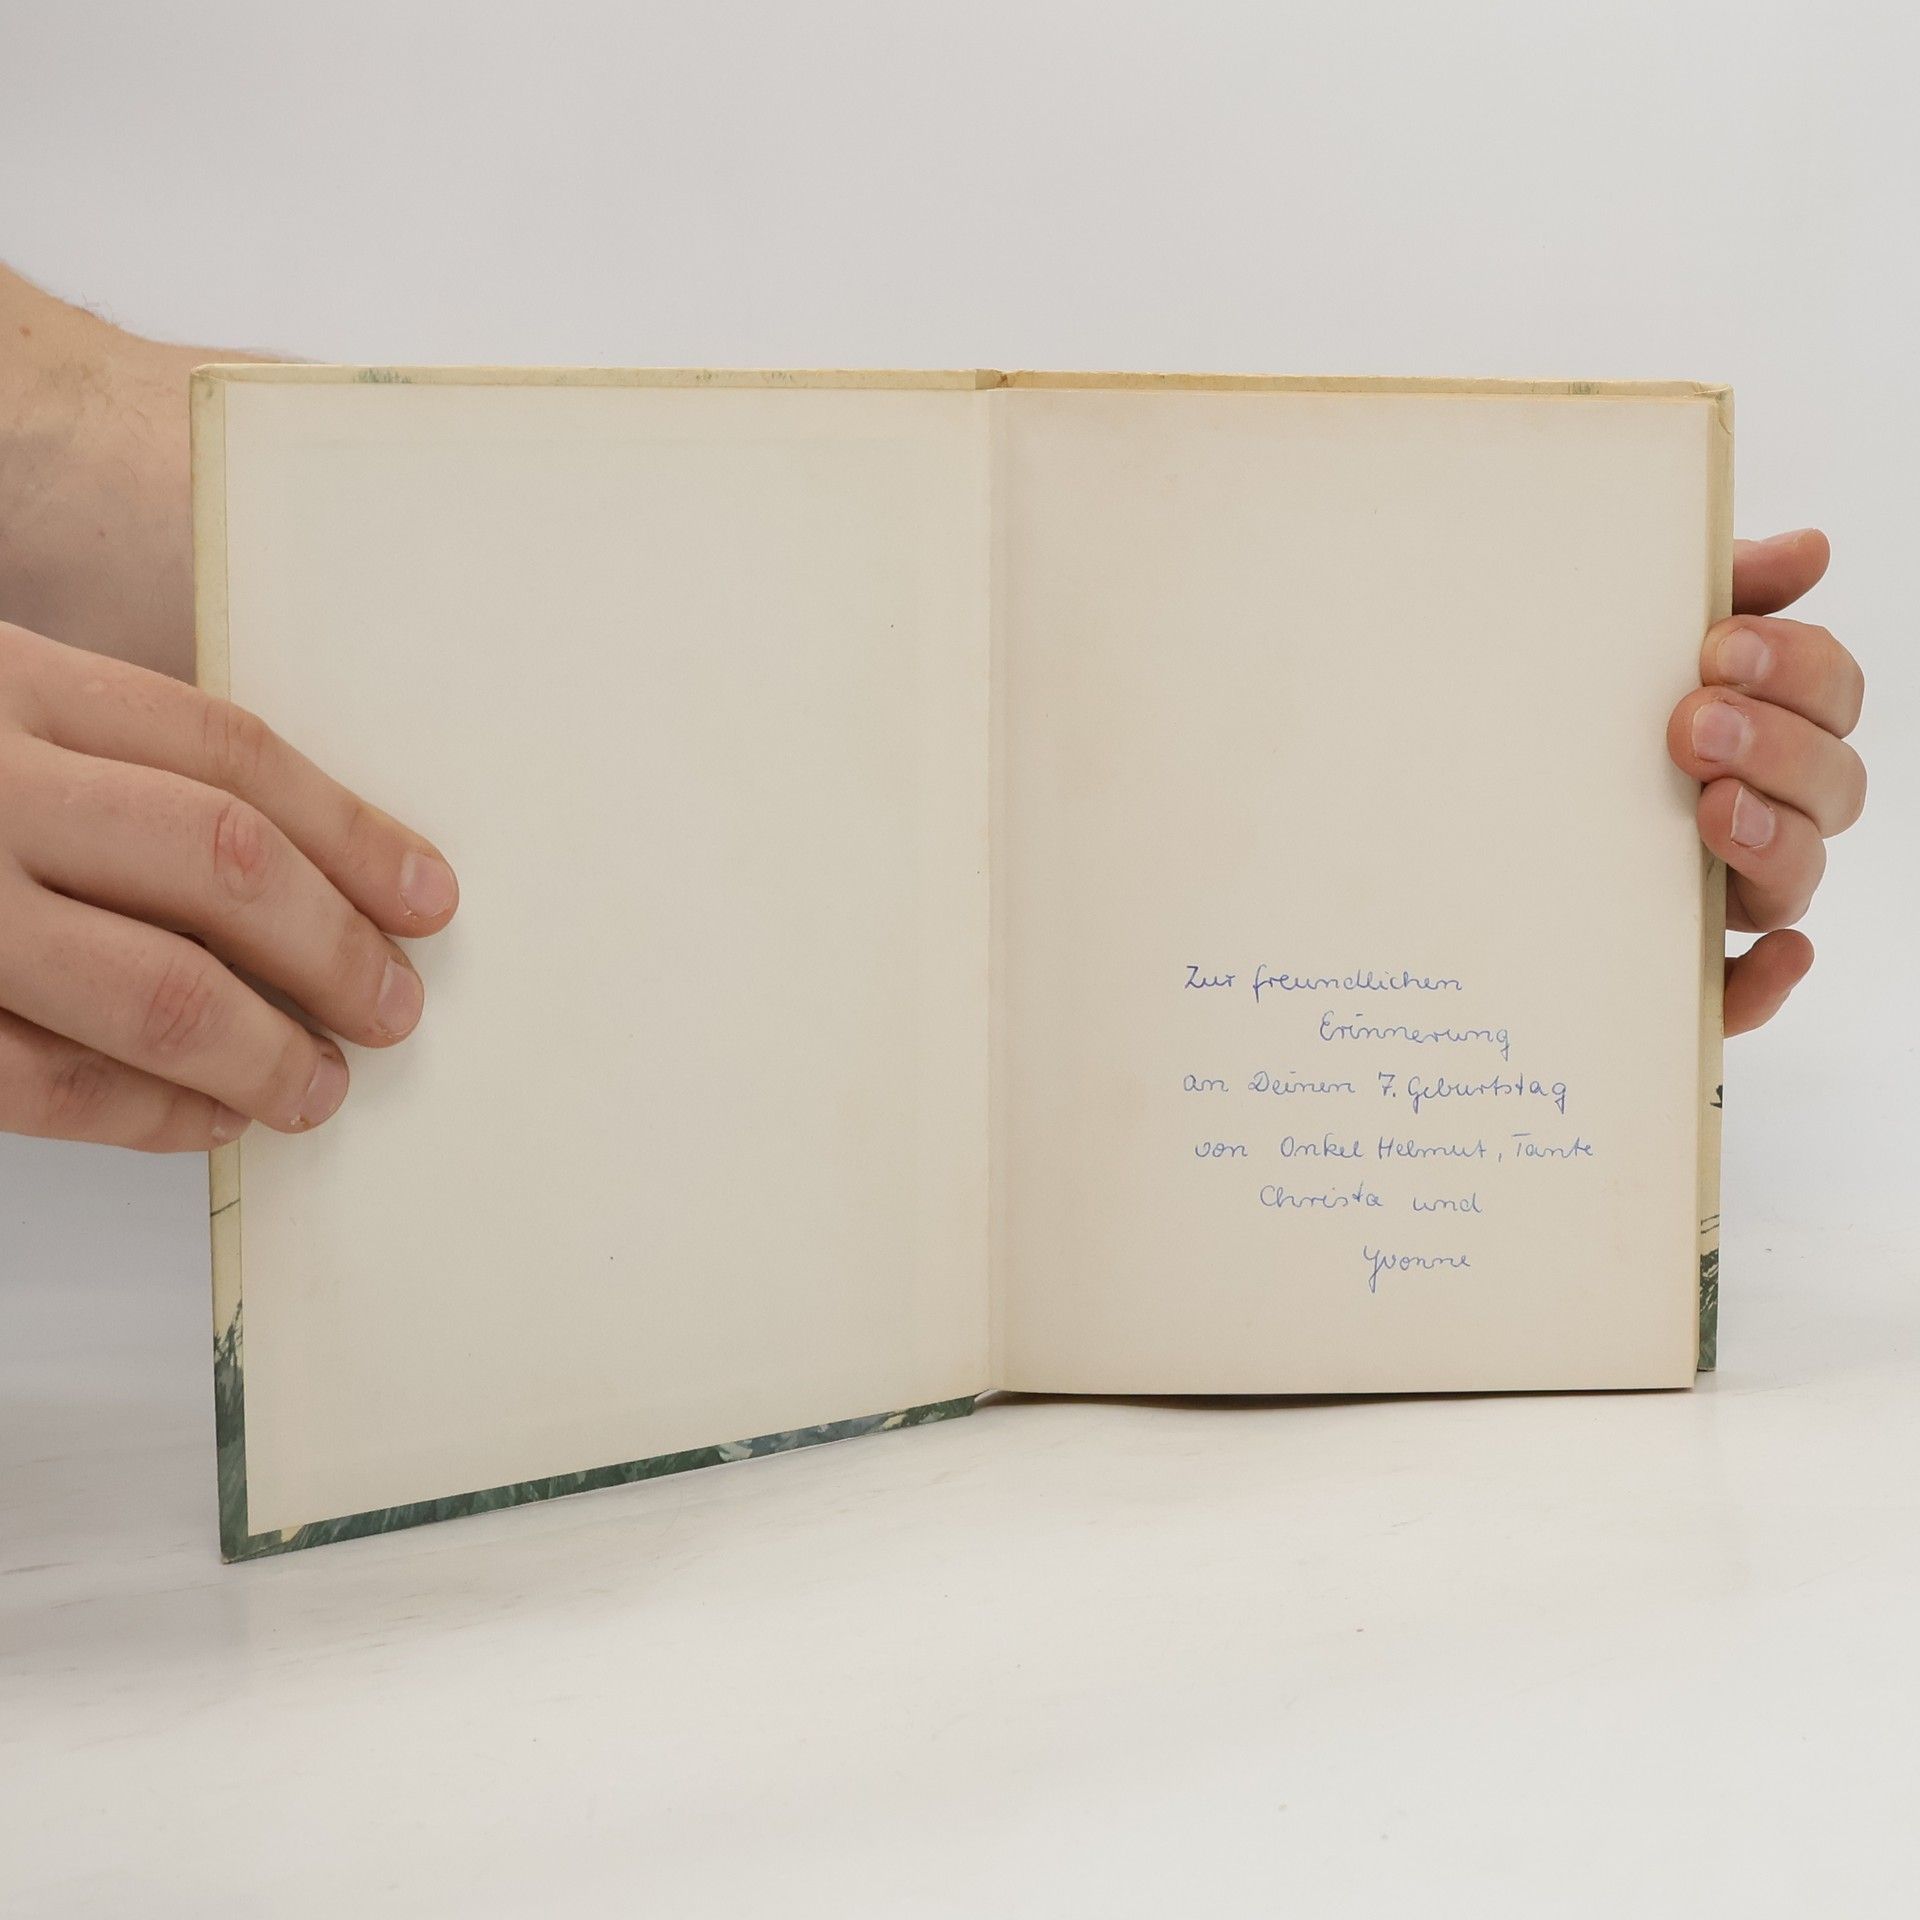 Zur freundlichen
Erinnerung
an Deinen 7. Geburtstag
von Onkel Helmut, Tante
Christa und
Yvonne